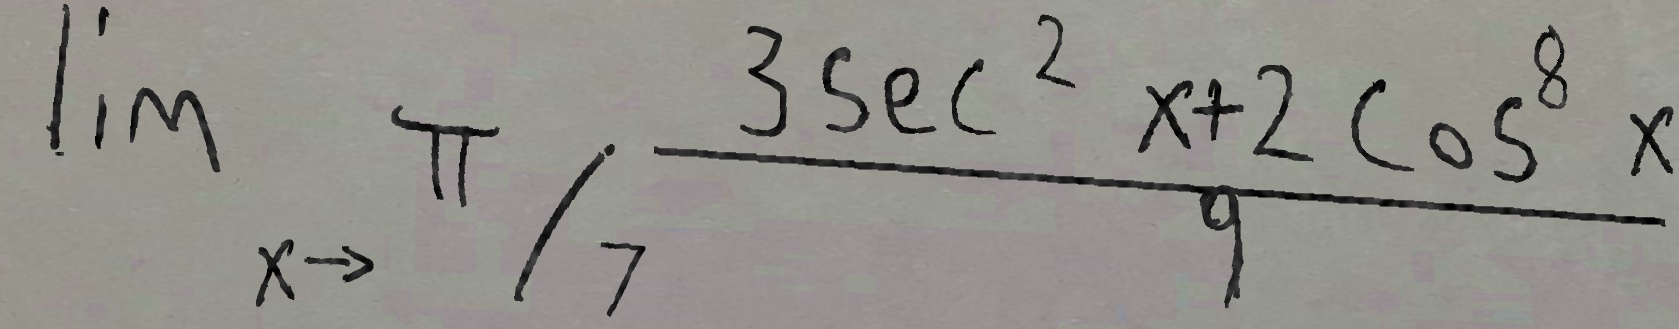 lim x→π/7 (3 sec² x + 2 cos⁸ x)/9